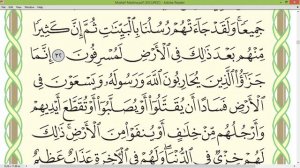 Adobe Reader
جَمِيعًا ۚ وَلَقَدْ جَآءَتْهُمْ رُسُلُنَا بِٱلْبَيِّنَٰتِ ثُمَّ إِنَّ كَثِيرًا
مِّنْهُم بَعْدَ ذَٰلِكَ فِى ٱلْأَرْضِ لَمُسْرِفُونَ ٣٢ إِنَّمَا
جَزَٰٓؤُا۟ ٱلَّذِينَ يُحَارِبُونَ ٱللَّهَ وَرَسُولَهُۥ وَيَسْعَوْنَ فِى
ٱلْأَرْضِ فَسَادًا أَن يُقَتَّلُوٓا۟ أَوْ يُصَلَّبُوٓا۟ أَوْ تُقَطَّعَ أَيْدِيهِمْ
وَأَرْجُلُهُم مِّنْ خِلَٰفٍ أَوْ يُنفَوْا۟ مِنَ ٱلْأَرْضِ ۚ ذَٰلِكَ
لَهُمْ خِزْىٌ فِى ٱلدُّنْيَا ۖ وَلَهُمْ فِى ٱلْءَاخِرَةِ عَذَابٌ عَظِيمٌ